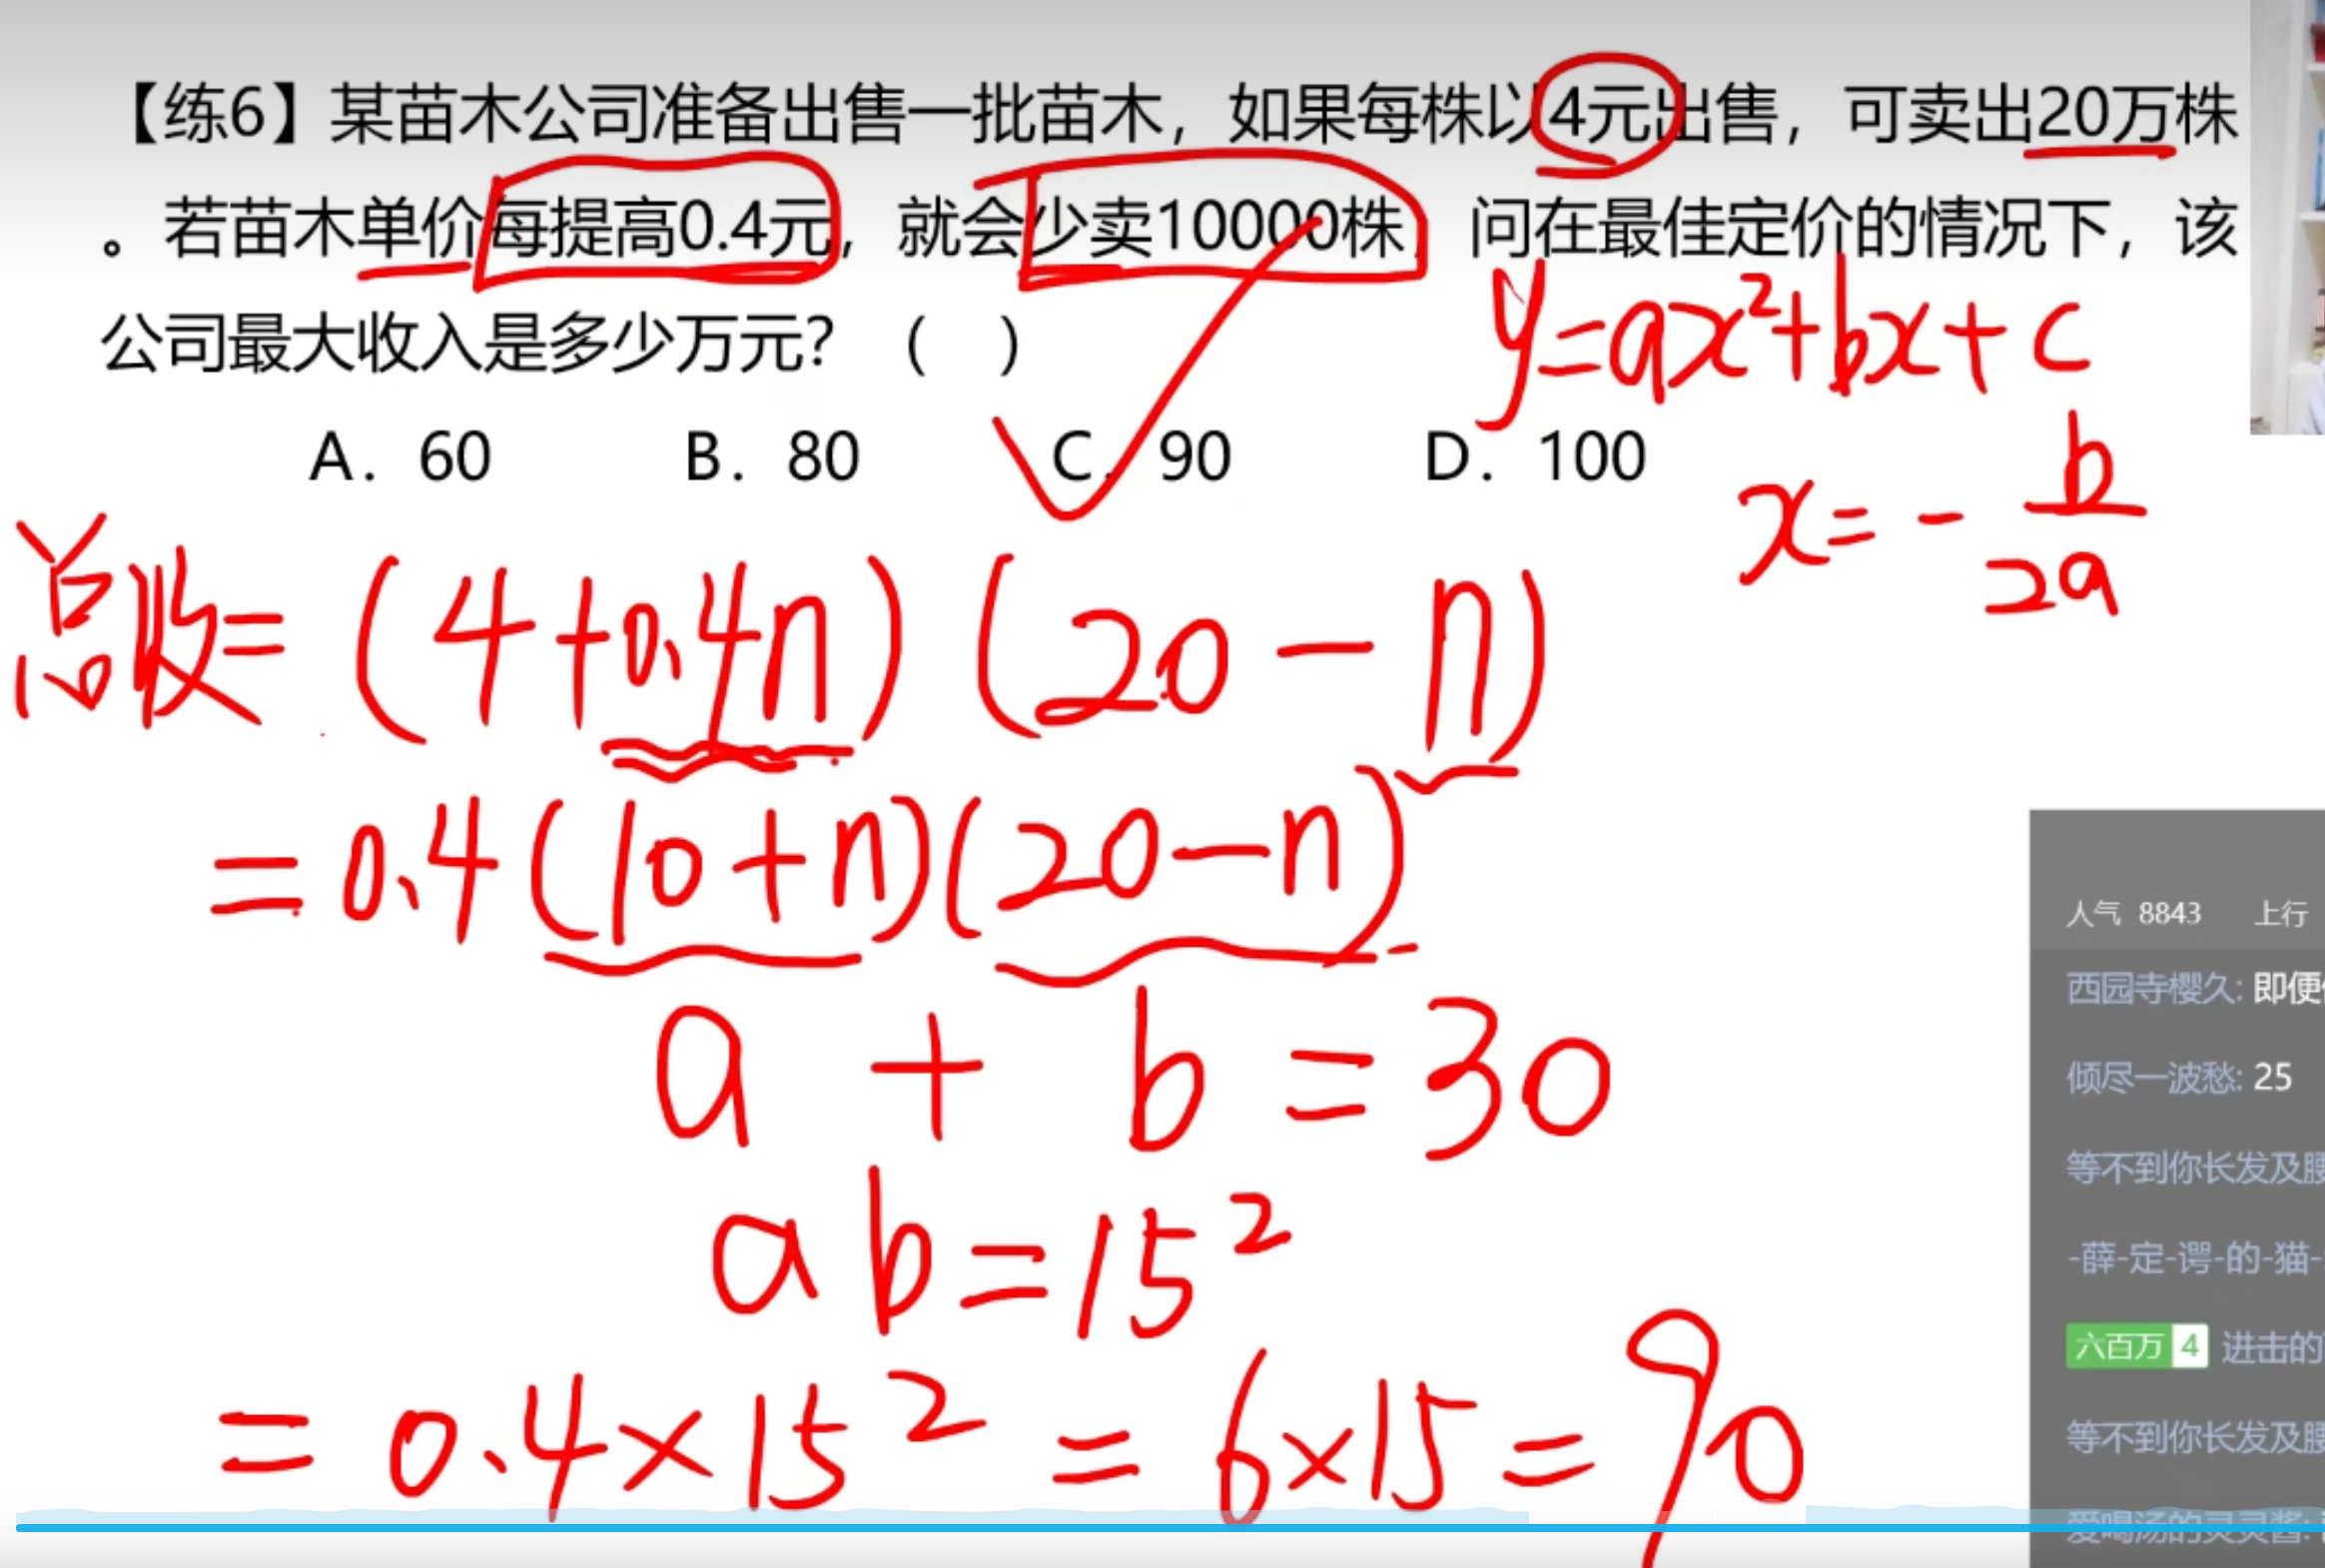 【练6】某苗木公司准备出售一批苗木，如果每株以4元出售，可卖出20万株
。若苗木单价每提高0.4元，就会少卖10000株，问在最佳定价的情况下，该
公司最大收入是多少万元？（　）
A．60　B．80　C．90　D．100
y=ax²+bx+c
x=-b/2a
总收=(4+0.4n)(20-n)
=0.4(10+n)(20-n)
a+b=30
ab=15²
=0.4×15²=6×15=90
人气 8843 上行
西园寺樱久: 即便
倾尽一波愁: 25
等不到你长发及腰
-薛-定-谔-的-猫-
六百万 4 进击的
等不到你长发及腰
爱喝汤的灵灵酱: